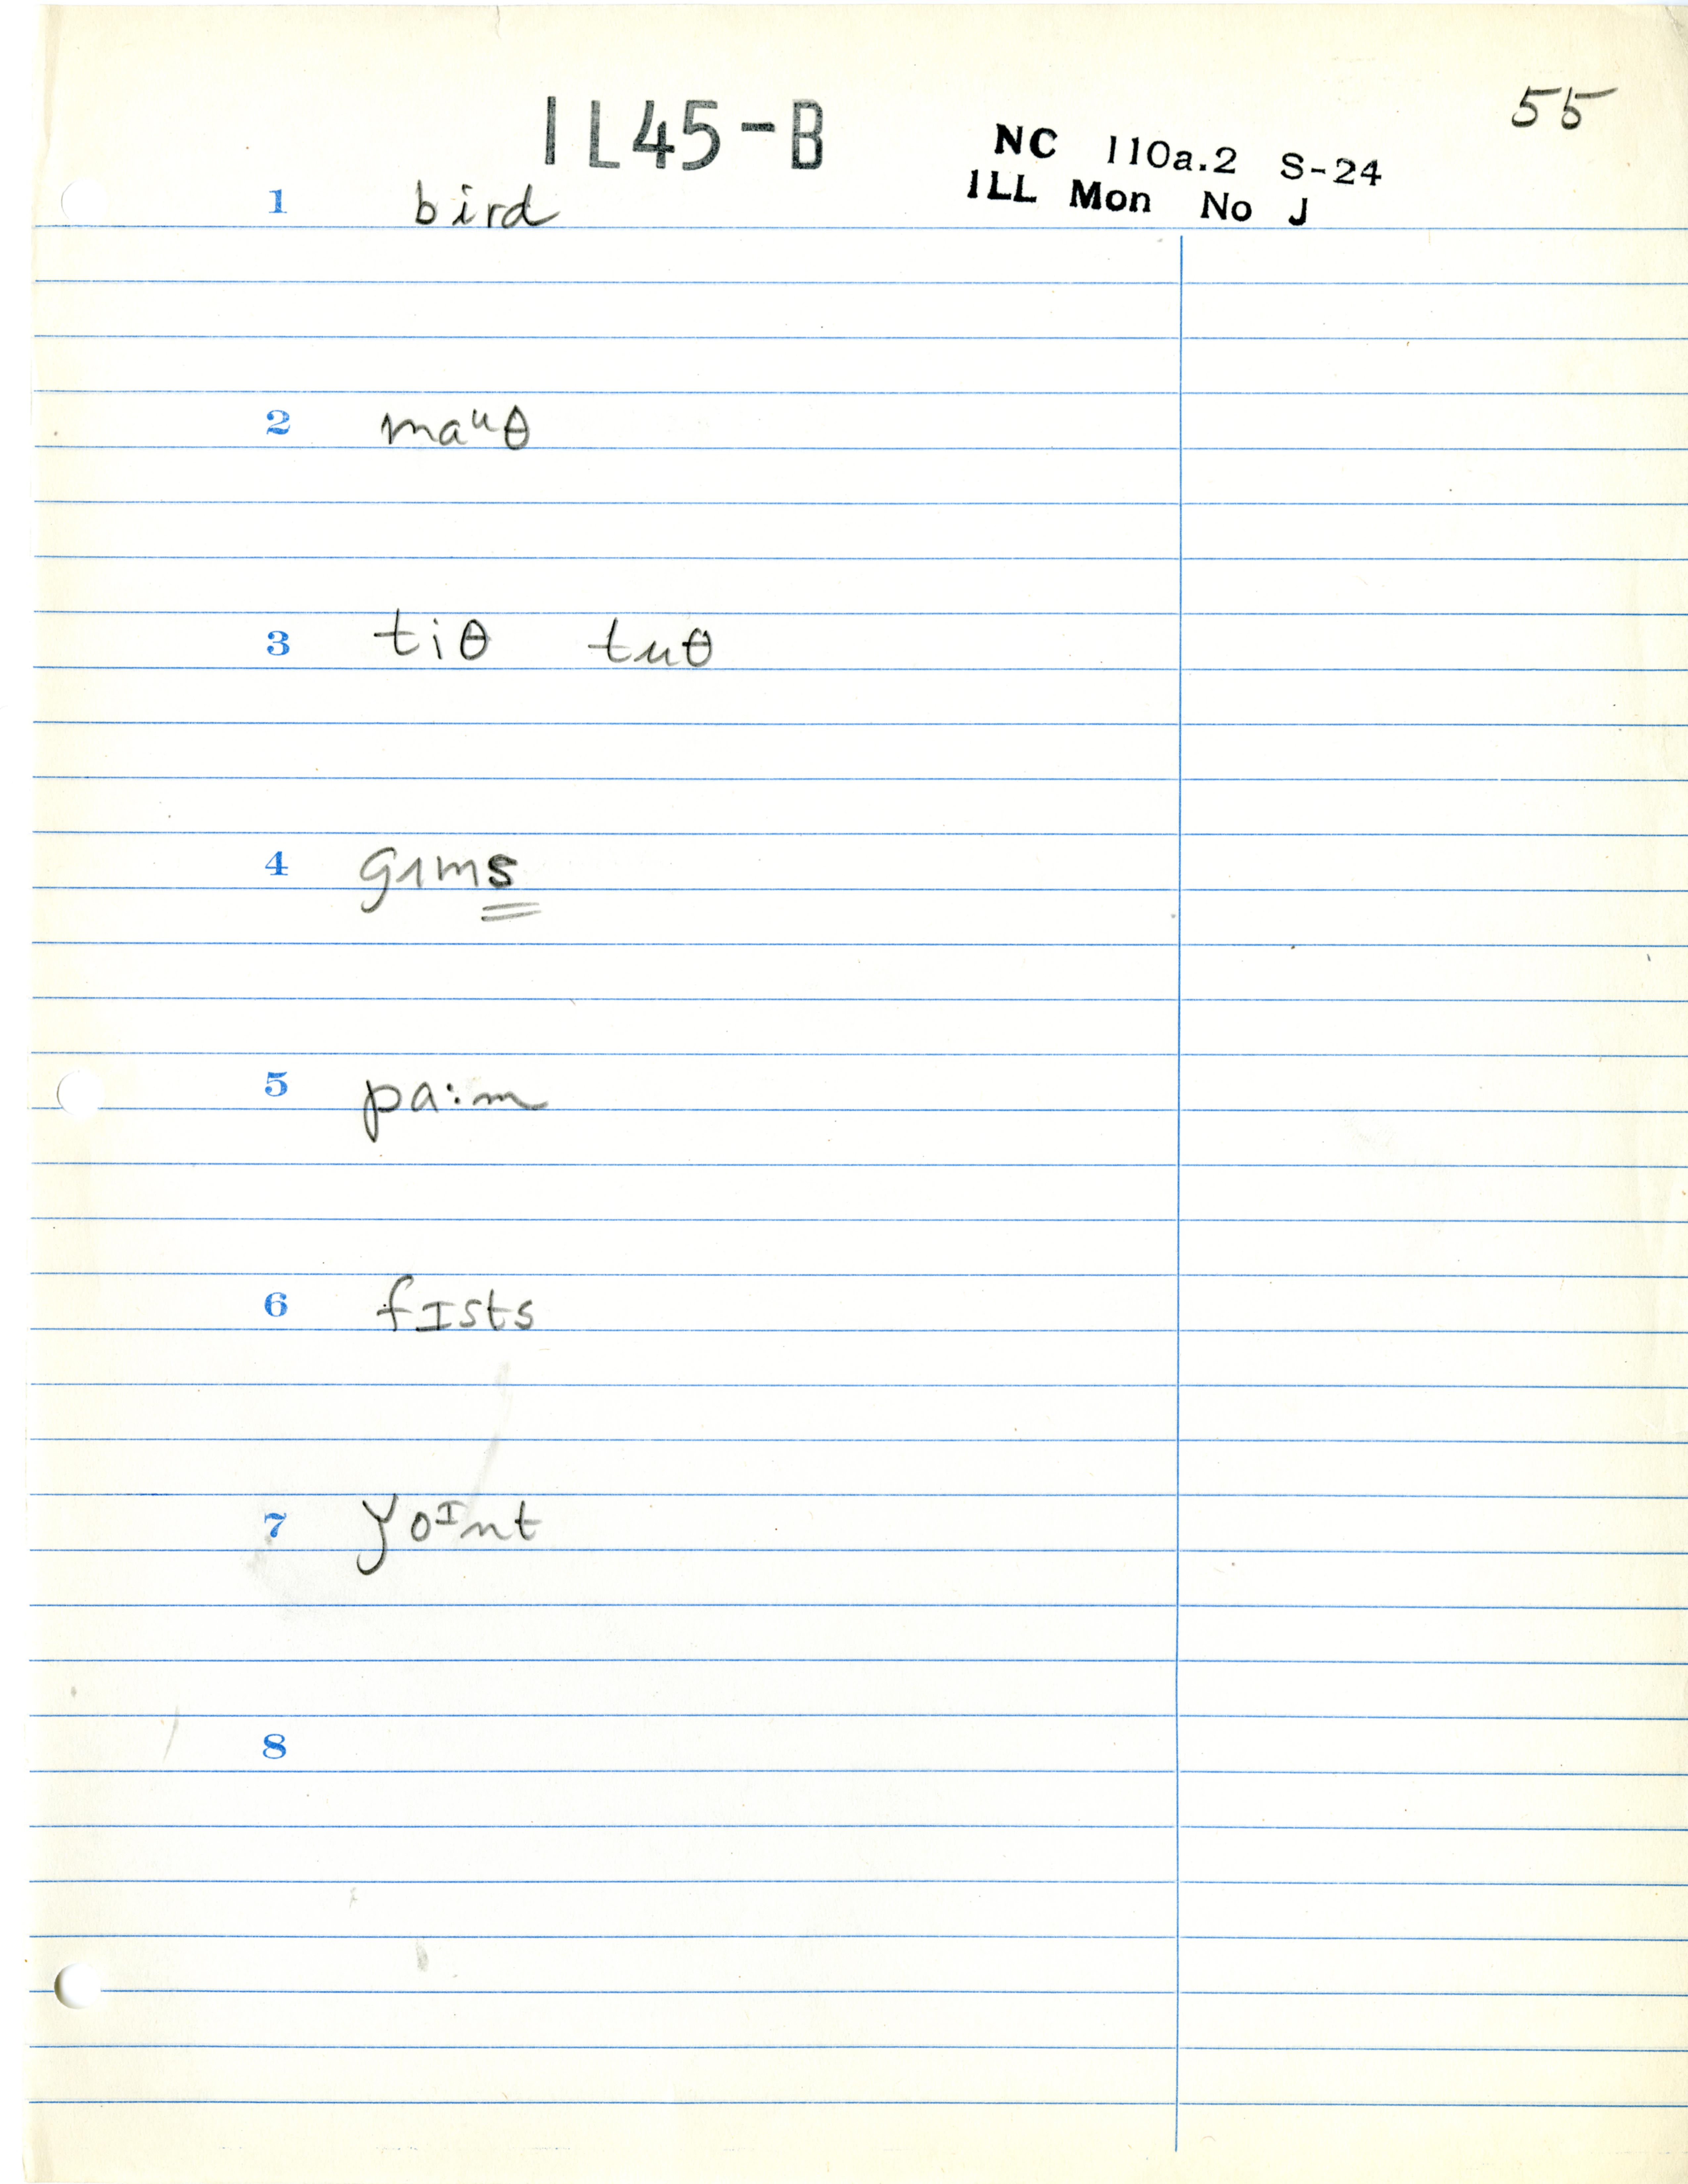 55
1L45-B
NC 110a.2 S-24
ILL Mon No J
1 bird
2 maᵘθ
3 tiθ tuθ
4 gɪms
5 pa:m
6 fɪsts
7 ɣoᴵnt
8